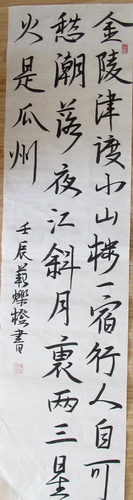 金陵津渡小山楼一宿行人自可
愁潮落夜江斜月裏两三星
火是瓜州
壬辰書